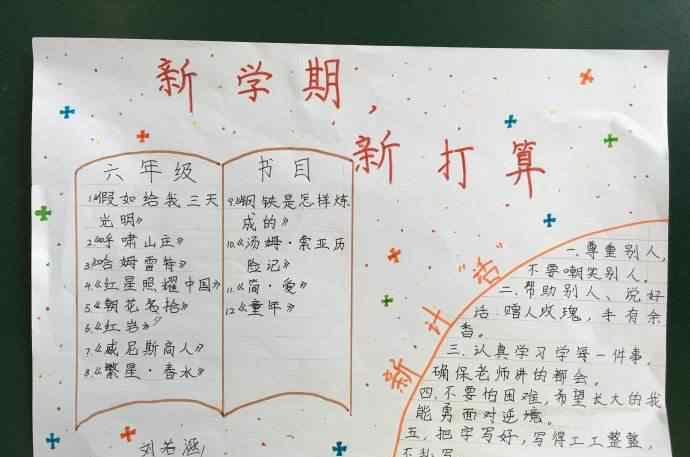 新学期，
新打算
六年级
1.《假如给我三天
光明》
2.《呼啸山庄》
3.《哈姆雷特》
4.《红星照耀中国》
5.《朝花夕拾》
6.《红岩》
7.《威尼斯商人》
8.《繁星·春水》
书目
9.《钢铁是怎样炼
成的》
10.《汤姆·索亚历
险记》
11.《简·爱》
12.《童年》
刘若涵
新计“活”
一.尊重别人,
不要嘲笑别人。
二.帮助别人、说好
话.赠人玫瑰，手有余
香。
三.认真学习学每一件事,
确保老师讲的都会。
四.不要怕困难,希望长大的我
能勇面对逆境。
五.把字写好,写得工工整整,
不乱写